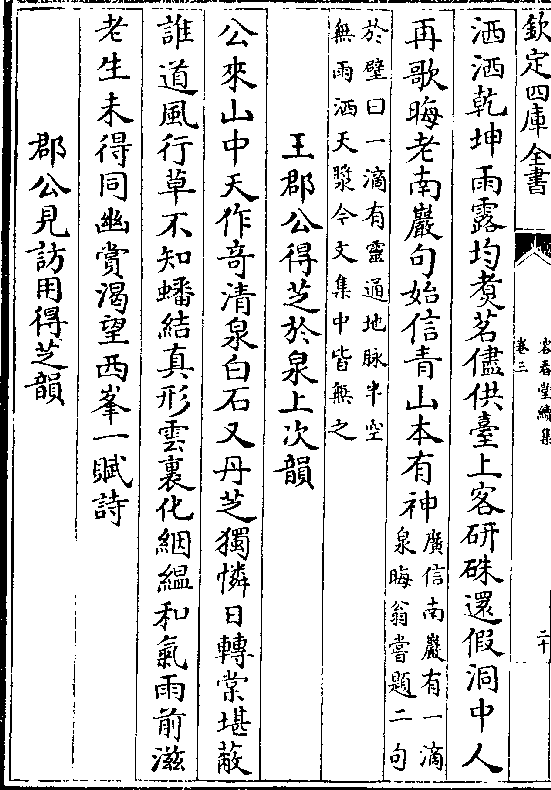 欽定四庫全書
容春堂續集
卷三
二十
洒洒乾坤雨露均煑茗儘供臺上客研硃還假洞中人
再歌晦老南巖句始信青山本有神
廣信南巖有一滴
泉晦翁嘗題二句
於壁曰一滴有靈通地脉半空
無雨洒天漿今文集中皆無之
王郡公得芝於泉上次韻
公來山中天作竒清泉白石又丹芝獨憐日轉棠堪蔽
誰道風行草不知蟠結真形雲裏化絪緼和氣雨前滋
老生未得同幽賞渴望西峯一賦詩
郡公見訪用得芝韻